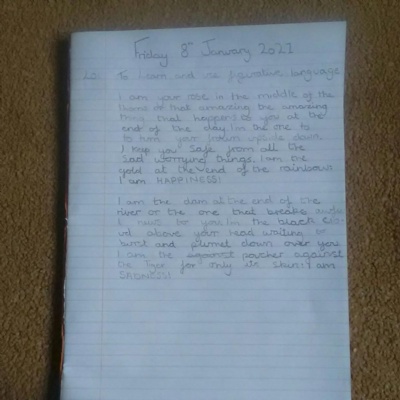 Friday 8th January 2021
LO: To learn and use figurative language
I am your rose in the middle of the
thorns or that amazing the amazing
thing that happens to you at the
end of the day. I'm the one to
to turn your frown upside down.
I keep you safe from all the
sad worrying things. I am the
gold at the end of the rainbow.
I am HAPPINESS!
I am the dam at the end of the
river or the one that breaks
I for you. I'm the black
above your head waiting to
burst and down over you
I am the against
the for only its skin. I am
SADNESS!